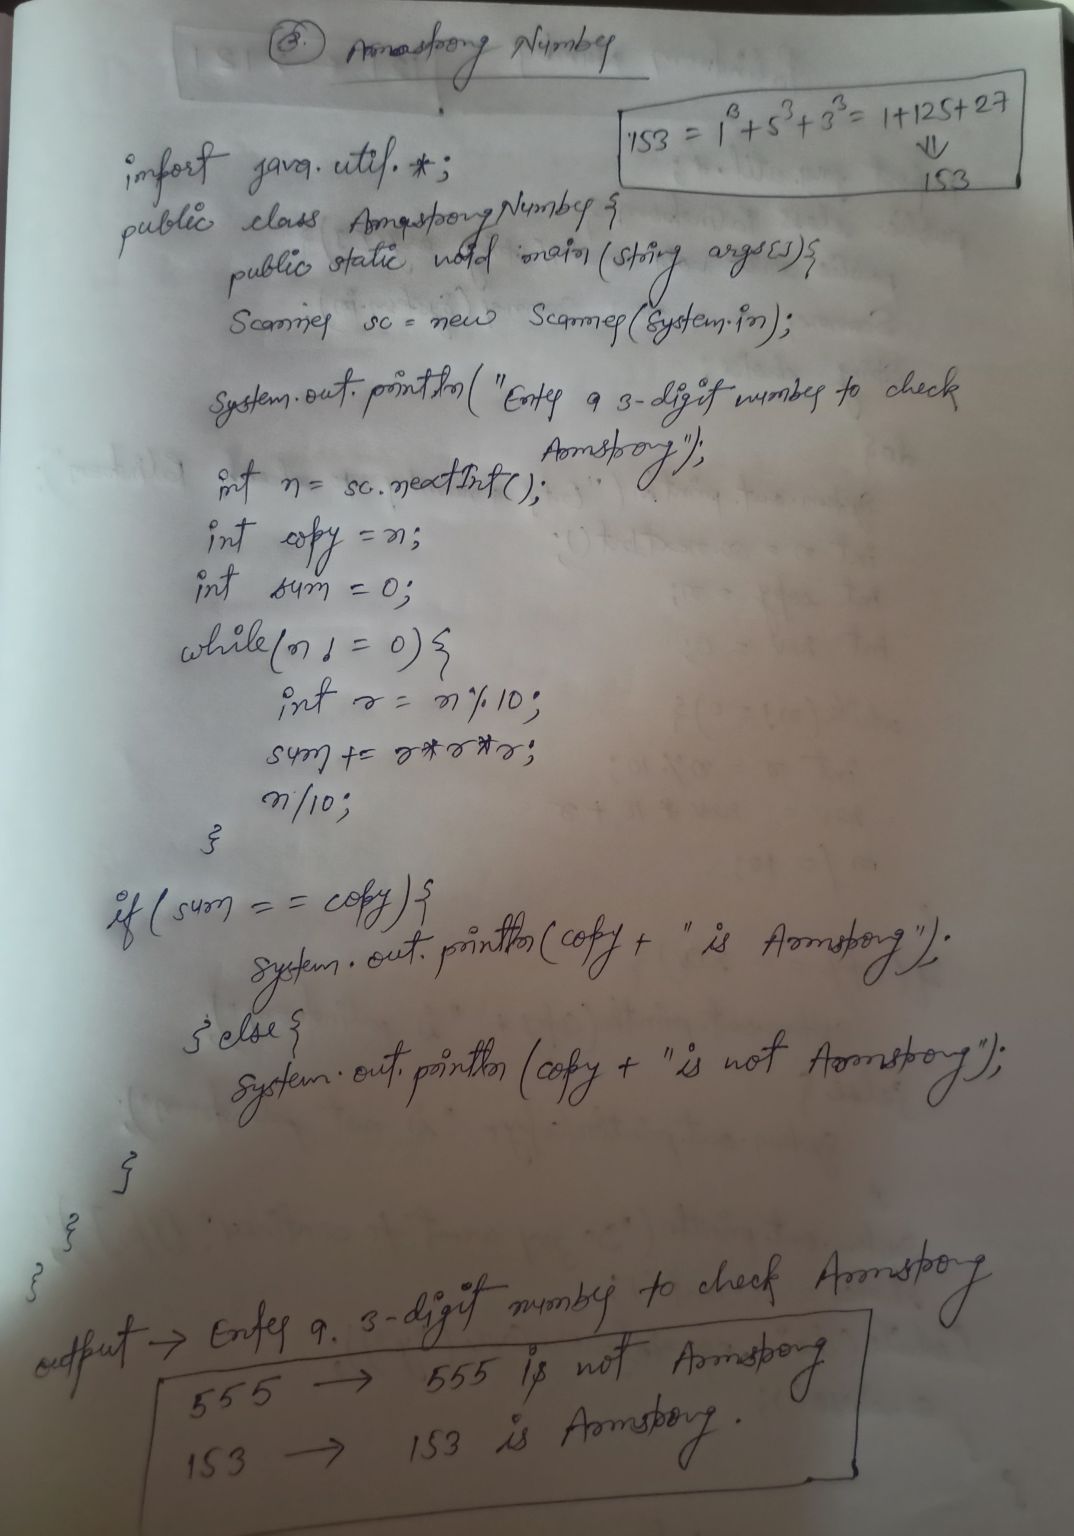 3. Armstrong Number
153 = 1³ + 5³ + 3³ = 1+125+27
⇓
153
import java.util.*;
public class ArmstrongNumber {
public static void main(String args[]){
Scanner sc = new Scanner(System.in);
System.out.println("Enter a 3-digit number to check
Armstrong");
int n = sc.nextInt();
int copy = n;
int sum = 0;
while(n != 0){
int r = n%10;
sum += r*r*r;
n/10;
}
if(sum == copy){
System.out.println(copy + " is Armstrong");
} else {
System.out.println(copy + "is not Armstrong");
}
}
}
output → Enter a 3-digit number to check Armstrong
555 → 555 is not Armstrong
153 → 153 is Armstrong.